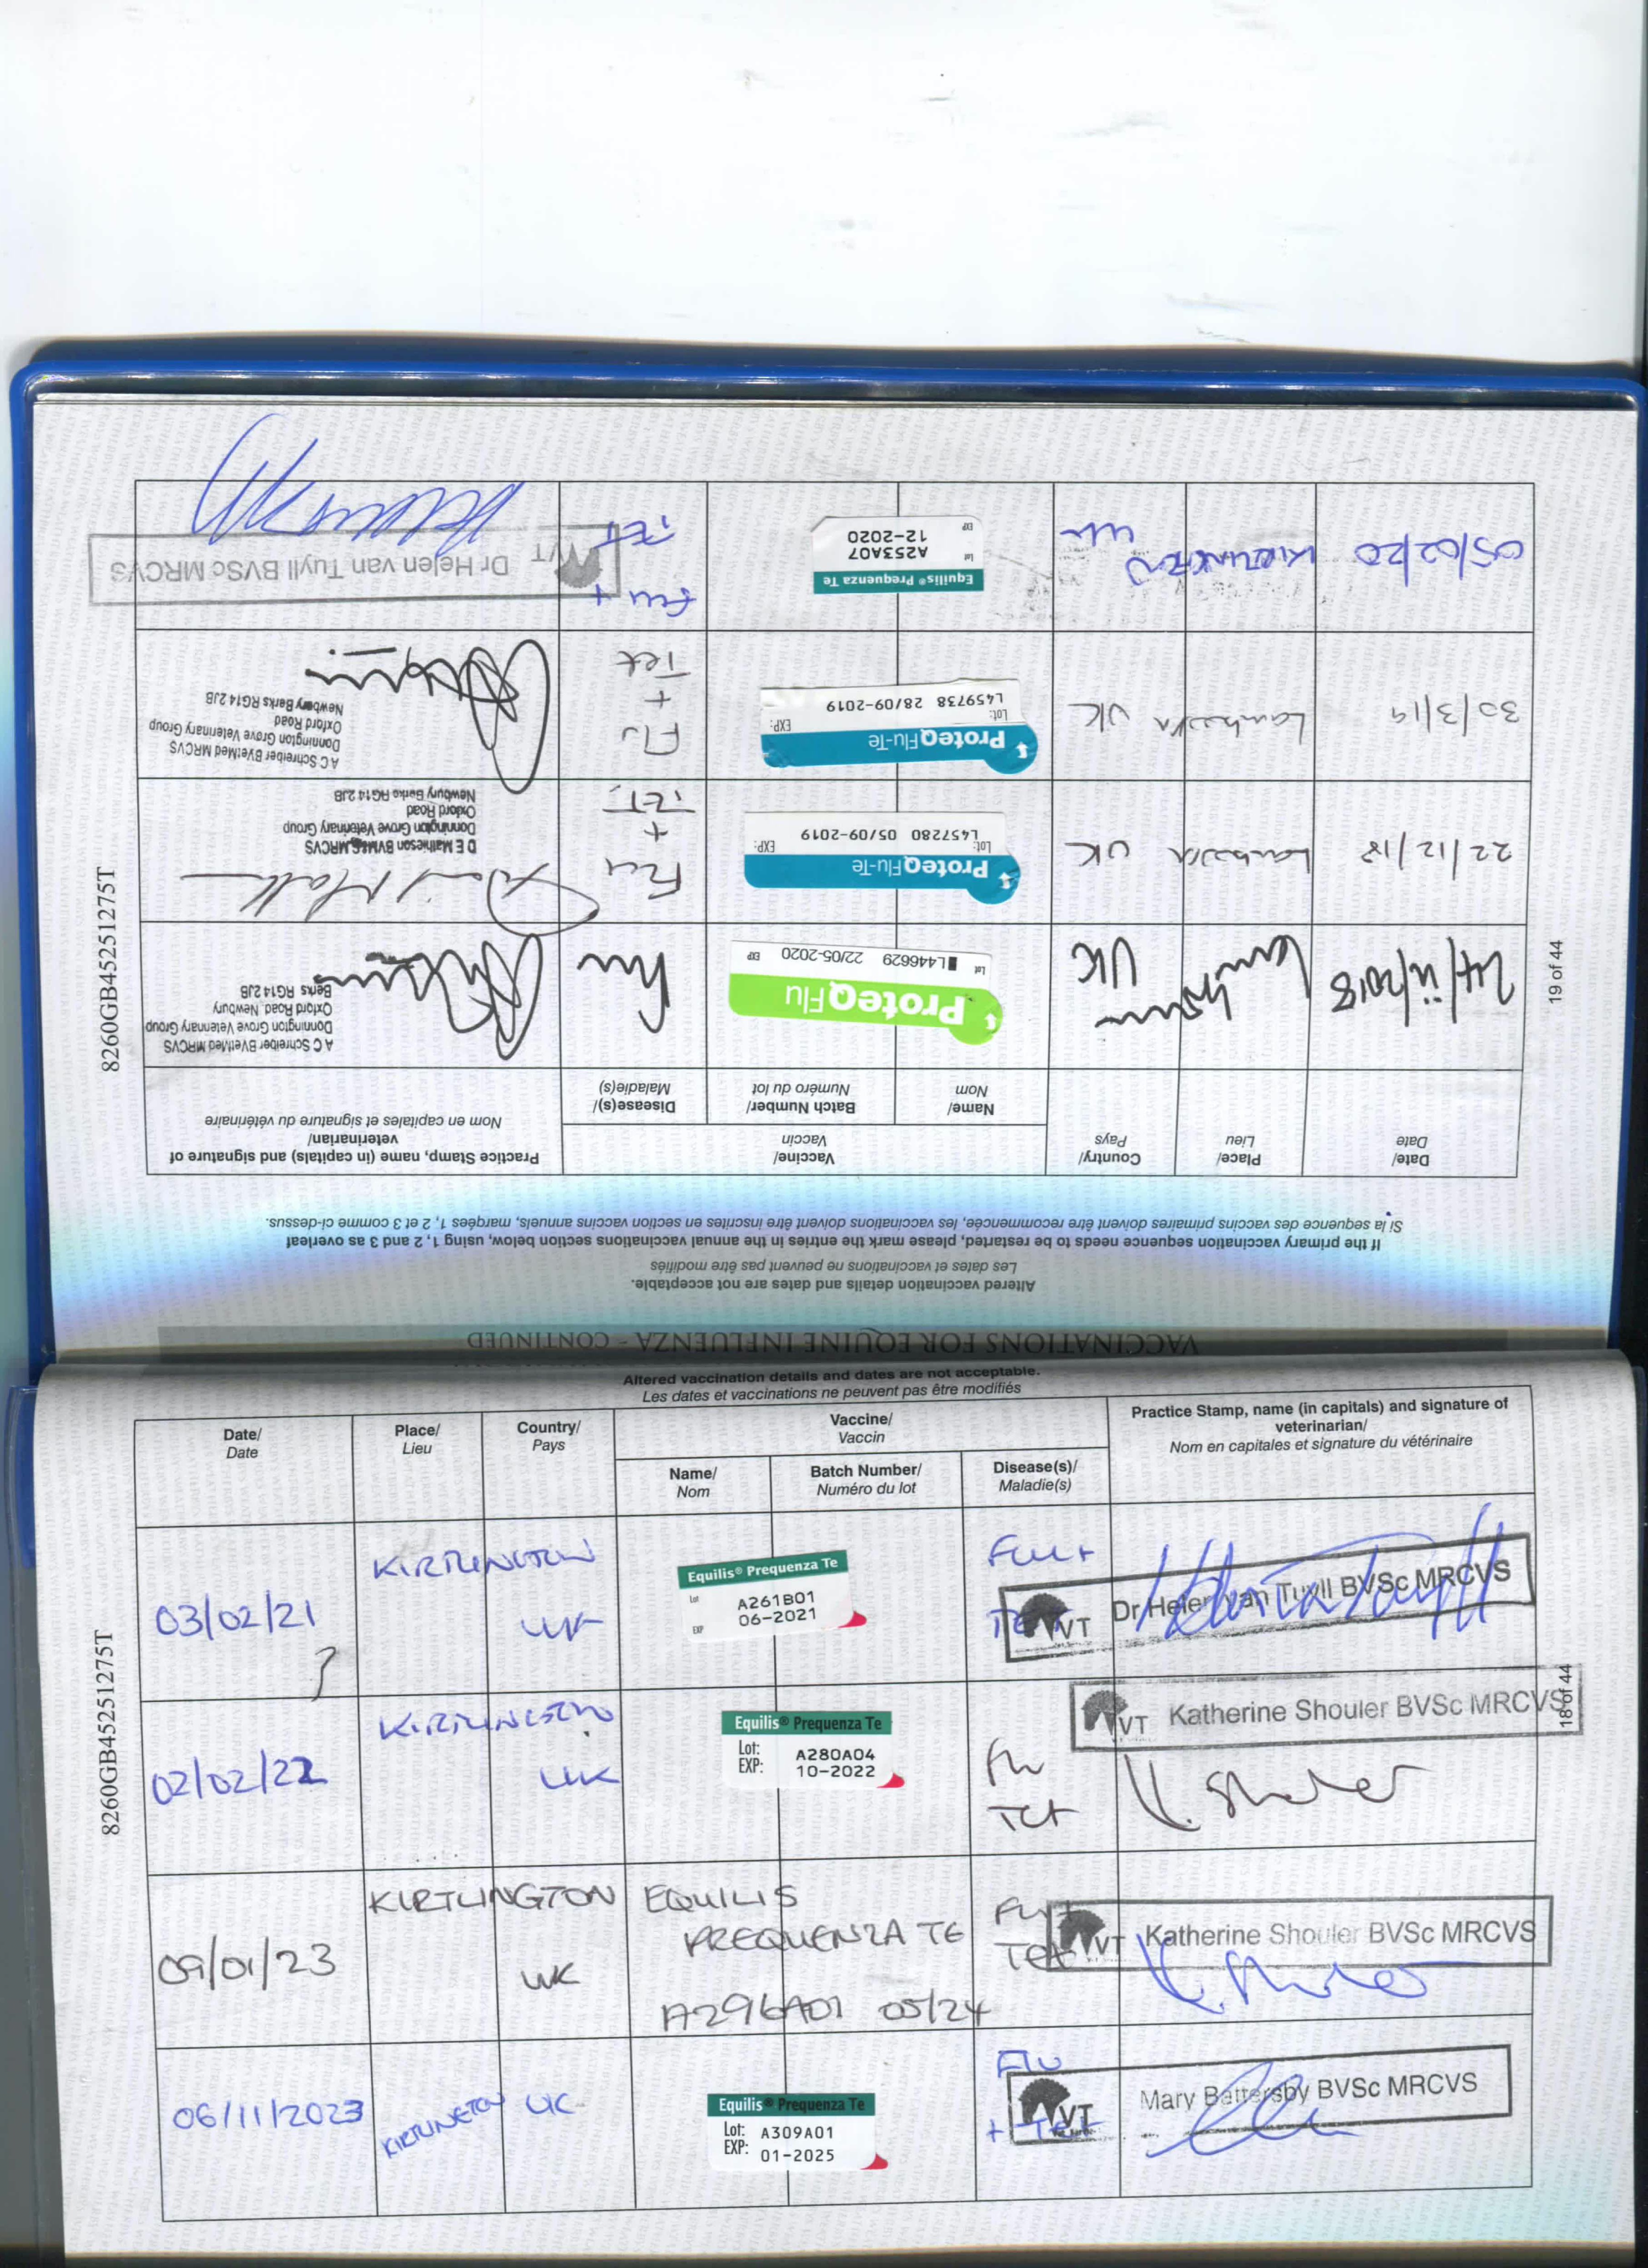 VACCINATIONS FOR EQUINE INFLUENZA - CONTINUED
Altered vaccination details and dates are not acceptable.
Les dates et vaccinations ne peuvent pas être modifiés
If the primary vaccination sequence needs to be restarted, please mark the entries in the annual vaccinations section below, using 1, 2 and 3 as overleaf
Si la sequence des vaccins primaires doivent être recommencée, les vaccinations doivent être inscrites en section vaccins annuels, marqées 1, 2 et 3 comme ci-dessus.
Date/
Date
Place/
Lieu
Country/
Pays
Vaccine/
Vaccin
Name/
Nom
Batch Number/
Numéro du lot
Disease(s)/
Maladie(s)
Practice Stamp, name (in capitals) and signature of
veterinarian/
Nom en capitales et signature du vétérinaire
24/11/2018
UK
ProteqFlu
Lot L446629 22/05-2020 EXP
Flu
A C Schreiber BVetMed MRCVS
Donnington Grove Veterinary Group
Oxford Road, Newbury
Berks RG14 2JB
22/12/18
Lambourn
UK
ProteqFlu-Te
Lot: EXP:
L457280 05/09-2019
Flu
+
TET.
D E Mathieson BVM&S MRCVS
Donnington Grove Veterinary Group
Oxford Road
Newbury Berks RG14 2JB
30/3/19
Lambourn
UK
ProteqFlu-Te
Lot: EXP:
L459738 28/09-2019
Flu
+
Tet
A C Schreiber BVetMed MRCVS
Donnington Grove Veterinary Group
Oxford Road
Newbury Berks RG14 2JB
05/02/20
KIRTLINGTON
UK
Equilis® Prequenza Te
Lot A253A07
EXP 12-2020
Flu +
TET
VT Dr Helen van Tuyll BVSc MRCVS
19 of 44
8260GB45251275T
Altered vaccination details and dates are not acceptable.
Les dates et vaccinations ne peuvent pas être modifiés
Date/
Date
Place/
Lieu
Country/
Pays
Vaccine/
Vaccin
Name/
Nom
Batch Number/
Numéro du lot
Disease(s)/
Maladie(s)
Practice Stamp, name (in capitals) and signature of
veterinarian/
Nom en capitales et signature du vétérinaire
03/02/21
KIRTLINGTON
UK
Equilis® Prequenza Te
Lot A261B01
EXP 06-2021
Flu +
TET
VT Dr Helen van Tuyll BVSc MRCVS
02/02/22
KIRTLINGTON
UK
Equilis® Prequenza Te
Lot: A280A04
EXP: 10-2022
Flu
Tet
VT Katherine Shouler BVSc MRCVS
K. Shouler
09/01/23
KIRTLINGTON
UK
EQUILIS
PREQUENZA TE
A296A01 05/24
Flu +
Tet
VT Katherine Shouler BVSc MRCVS
K. Shouler
06/11/2023
KIRTLINGTON
UK
Equilis® Prequenza Te
Lot: A309A01
EXP: 01-2025
Flu
+ Tet
VT Mary Battersby BVSc MRCVS
18 of 44
8260GB45251275T